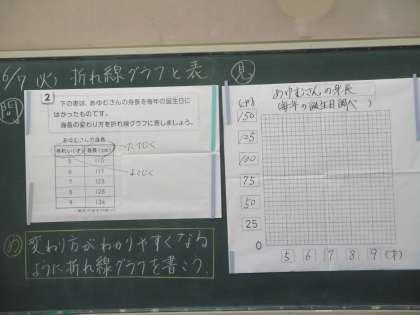 6/7 (火) 折れ線グラフと表
問
2
下の表は、あゆむさんの身長を毎年の誕生日に
はかったものです。
身長の変わり方を折れ線グラフに表しましょう。
あゆむさんの身長
年れい(才) 身長(cm)
5 110
6 117
7 123
8 128
9 134
たてじく
よこじく
め
変わり方がわかりやすくなる
ように折れ線グラフを書こう。
見
あゆむさんの身長
(毎年の誕生日調べ)
(cm)
150
125
100
75
50
25
0
5 6 7 8 9 (才)